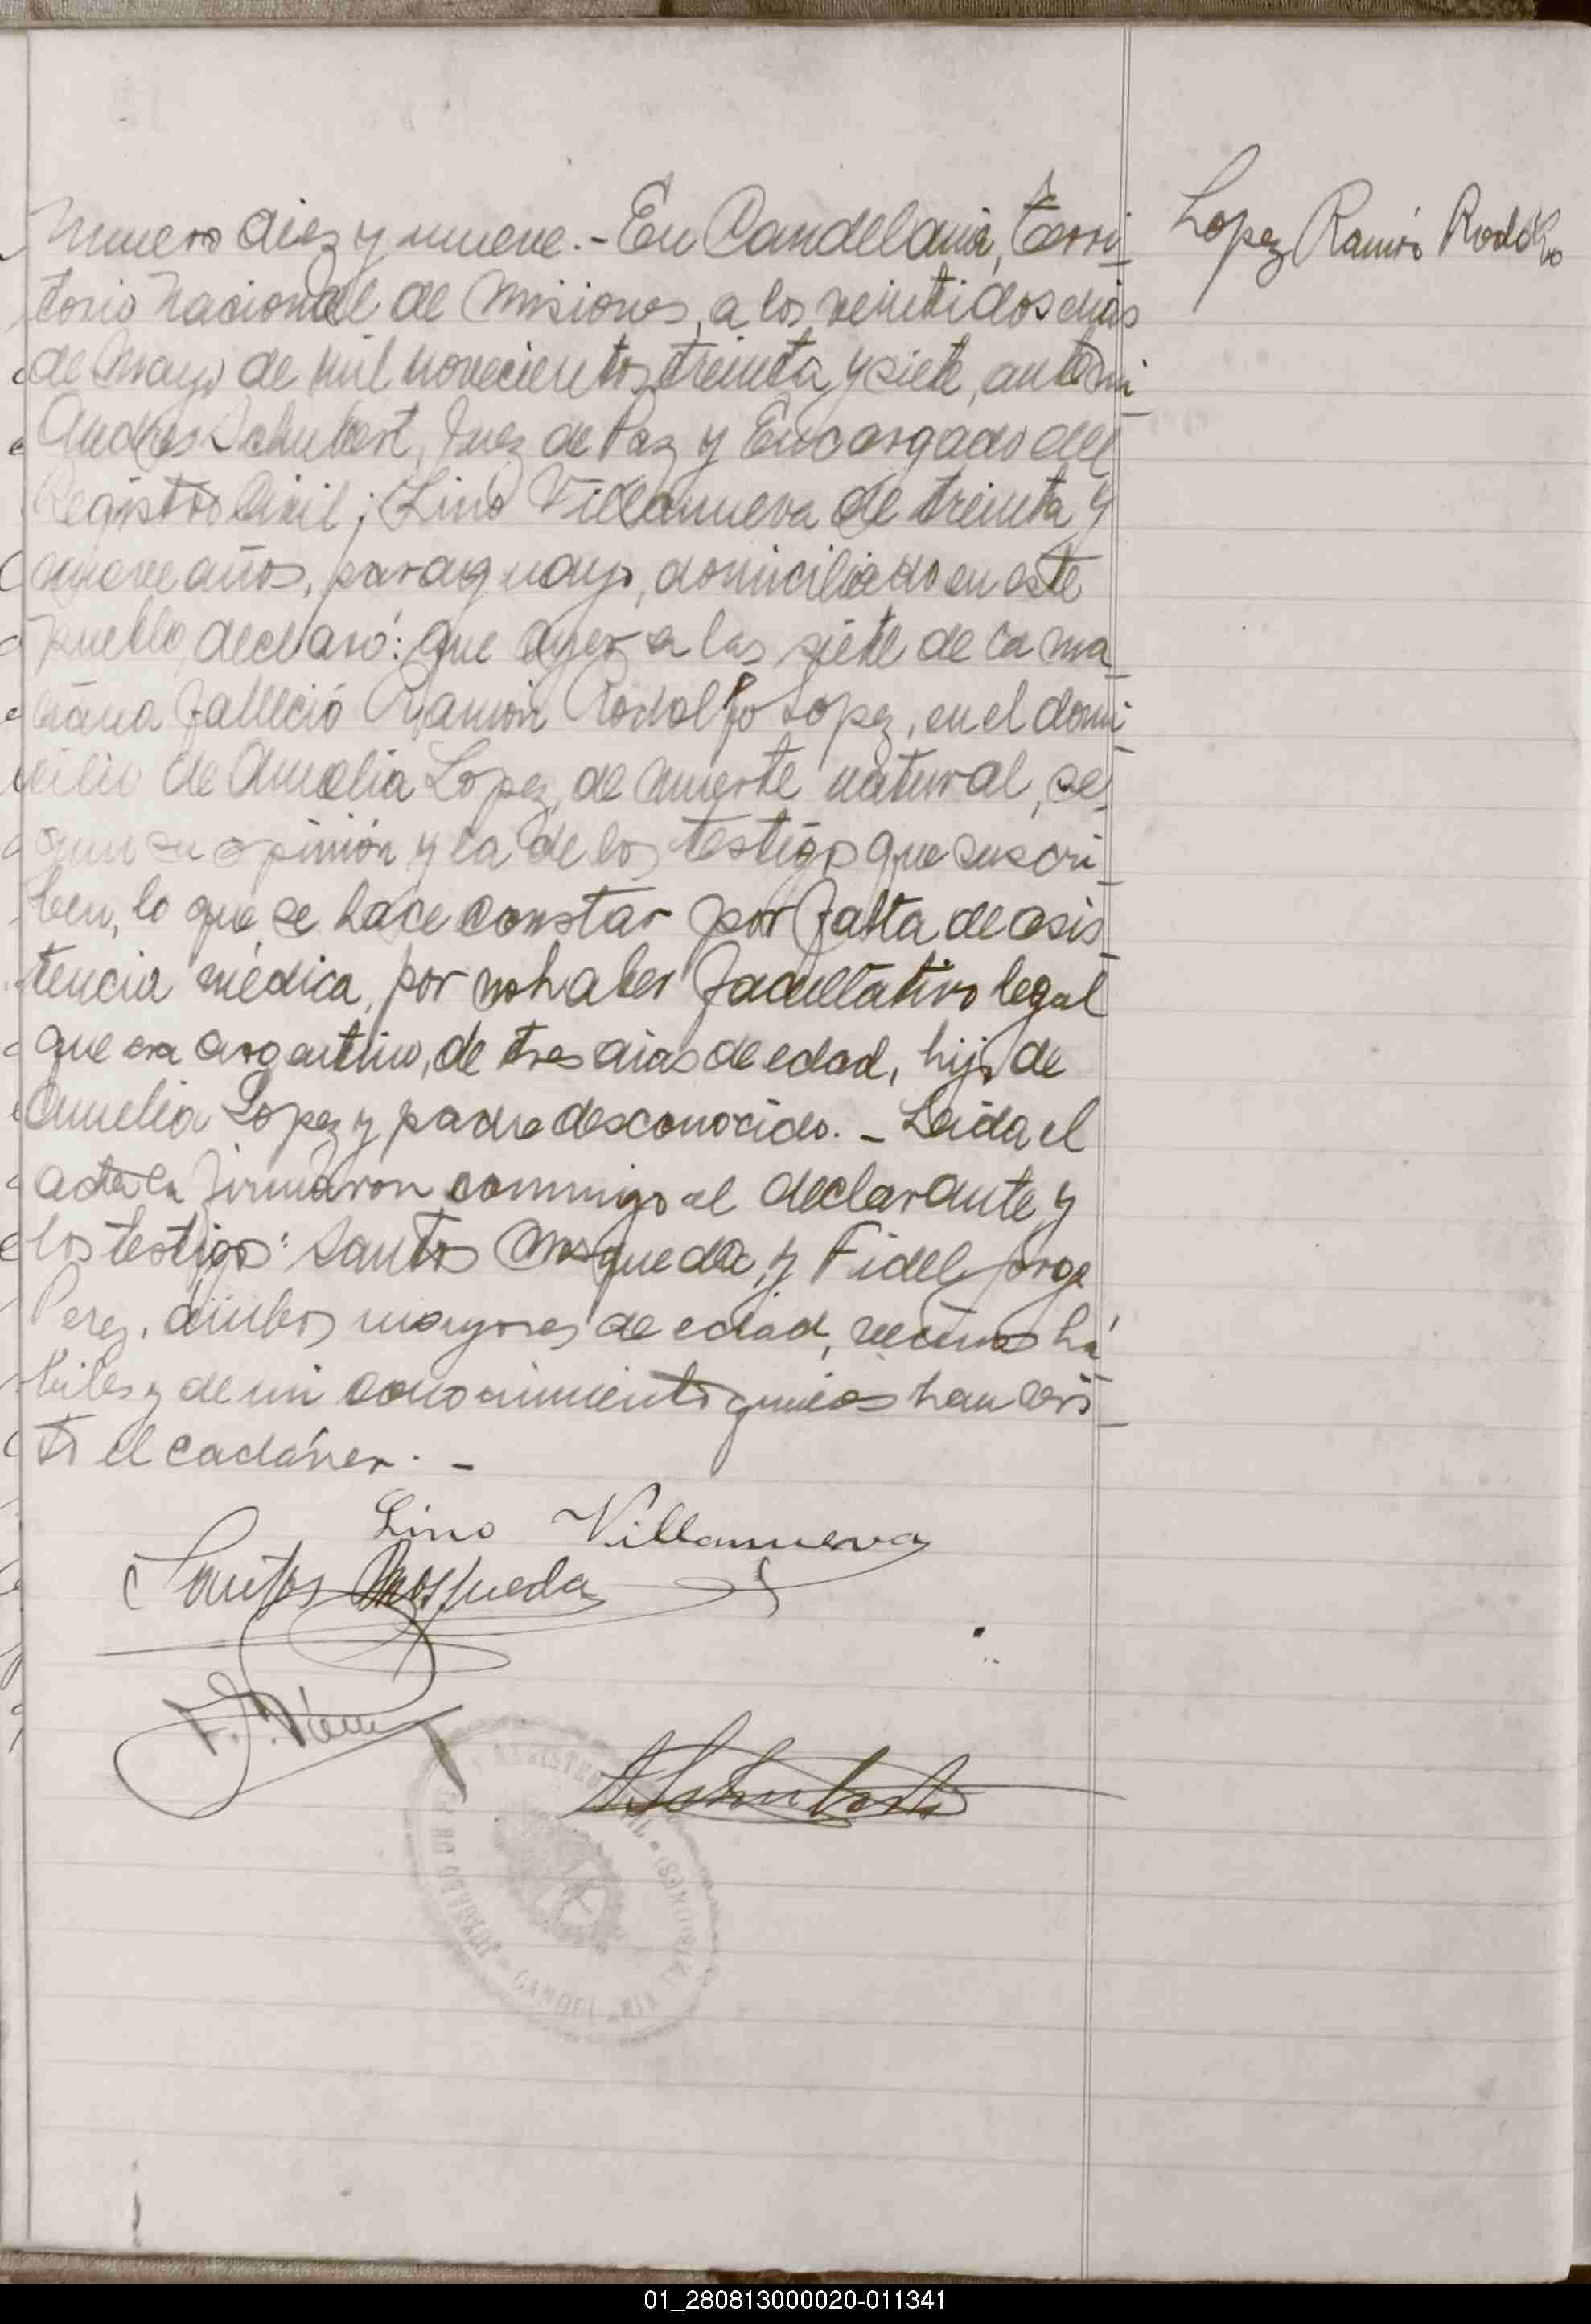 Lopez Ramón Rodolfo
Numero diez y nueve.- En Candelaria, Terri-
torio Nacional de Misiones, a los veintidos dias
de Mayo de mil novecientos treinta y siete, ante mi
Andres Schubert, Juez de Paz y Encargado del
Registro Civil; Lino Villanueva de treinta y
nueve años, paraguayo, domiciliado en este
pueblo, declaró: que ayer a las siete de la ma-
ñana falleció Ramón Rodolfo Lopez, en el domi-
cilio de Amelia Lopez, de muerte natural, se-
gun su opinión y la de los testigos que suscri-
ben, lo que se hace constar por falta de asis-
tencia médica, por no haber facultativo legal
que era argentino, de tres dias de edad, hijo de
Amelia Lopez y padre desconocido. - Leida el
acta la firmaron conmigo el declarante y
los testigos: Santos Mosqueda, y Fidel Jorge
Perez, ambos mayores de edad, vecinos há-
biles y de mi conocimiento quienes han vis-
to el cadáver. -
Lino Villanueva
Santos Mosqueda
F. J. Pérez
A Schubert
REGISTRO CIVIL • (MISIONES)
JUZGADO DE PAZ • CANDELARIA
01_280813000020-011341